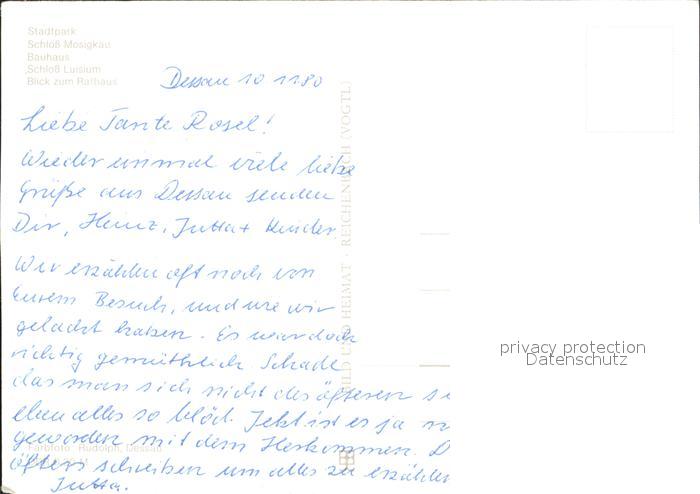 Stadtpark
Schloß Mosigkau
Bauhaus
Schloß Luisium
Blick zum Rathaus
Dessau 10 11 80
Liebe Tante Rosel!
Wieder einmal viele liebe
Grüße aus Dessau senden
Dir, Heinz, Jutta + Kinder
Wir erzählen oft noch von
Eurem Besuch, und wie wir
gelacht haben. Es war doch
richtig gemüthlich. Schade
das man sich nicht des öfteren se
eben alles so blöd. Jetzt ist es ja
geworden mit dem Herkommen. D
öfters schreiben um alles zu erzählen
Jutta.
BILD UND HEIMAT · REICHENBACH (VOGTL)
Farbfoto: Rudolph, Dessau
privacy protection
Datenschutz